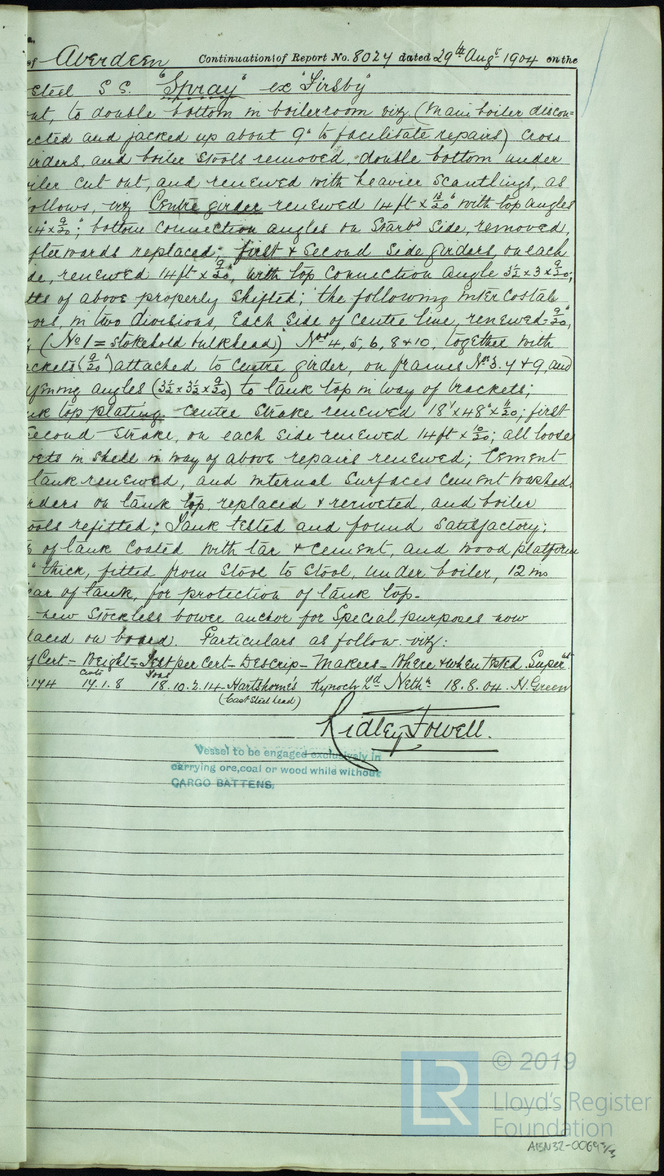 of Aberdeen Continuation of Report No. 8024 dated 29th Augst 1904 on the
Steel S.S. "Spray" ex "Firsby"
to double bottom in boilerroom viz (Main boiler discon=
ected and jacked up about 9" to facilitate repairs) Cross
irders, and boiler stools removed, double bottom under
iler cut out, and renewed with heavier scantlings, as
ollows, viz Centre girder renewed 14ft × 10/20" with top angles
4 × 9/20"; bottom connection angles on Starbd side, removed,
fterwards replaced; first & second side girders on each
de, renewed 14ft × 9/20", with top connection angle 3½ × 3 × 9/20;
of above properly shifted; the following intercostals
in two divisions, each side of centre line, renewed 9/20",
(No 1 = stokehold bulkhead) Nos 4, 5, 6, 8 & 10, together with
ckets (9/20") attached to centre girder, on frames Nos 3. 7 & 9, and
angles (3½ × 3½ × 9/20) to tank top in way of brackets;
nk top plating centre strake renewed 18' × 48" × 11/20; first
second strake, on each side renewed 14ft × 10/20; all loose
vets in shell in way of above repairs renewed; Cement
tank renewed, and internal surfaces cement washed.
rders on tank top replaced & reriveted, and boiler
ools refitted; Tank tested and found satisfactory;
of tank coated with tar & cement, and wood platform
" thick, fitted from stool to stool, under boiler, 12 ins
ear of tank, for protection of tank top.
new Stockless bower anchor for special purposes now
laced on board. Particulars as follow. viz:
of Cert – Weight – Test per Cert – Descrip – Makers – Where & when tested. Superdt
Cwts Tons
174 17.1.8 18.10.2.14 Hartshorne's Kynoch Ld Nethn 18.8.04. H. Green
(Cast Steel head)
Ridley Fowell.
Vessel to be engaged exclusively in
carrying ore, coal or wood while without
CARGO BATTENS.
LR © 2019
Lloyd's Register
Foundation